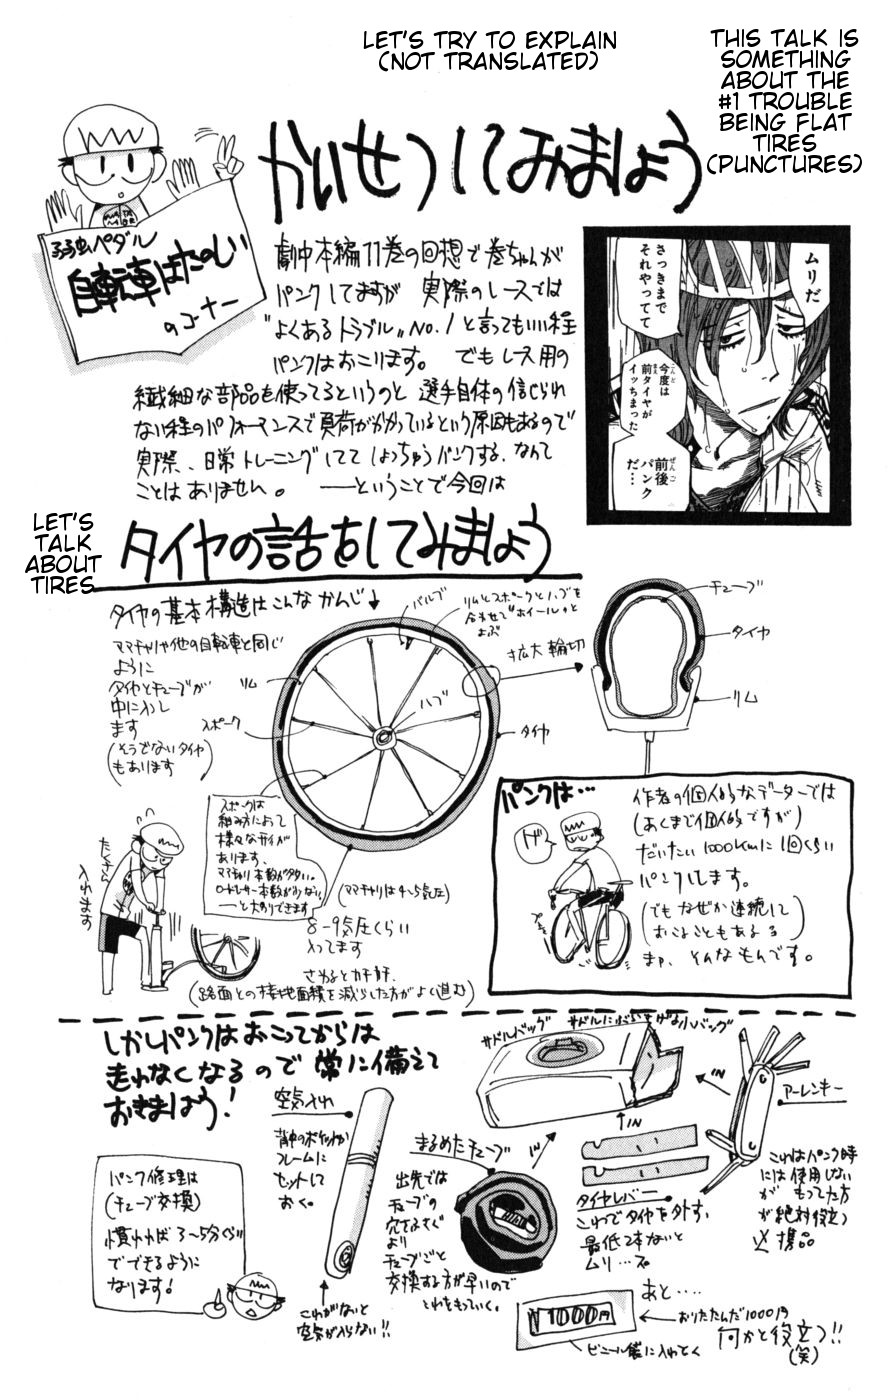 LET'S TRY TO EXPLAIN
(NOT TRANSLATED)
THIS TALK IS
SOMETHING
ABOUT THE
#1 TROUBLE
BEING FLAT
TIRES
(PUNCTURES)
かいせつしてみましょう
弱虫ペダル
自転車はたのしい
のコーナー
劇中本編11巻の回想で巻ちゃんが
パンクしてますが 実際のレースでは
"よくあるトラブル"NO.1と言ってもいい程
パンクはおこります。 でもレース用の
繊細な部品を使ってるというのと 選手自体の信じられ
ない程のパフォーマンスで負荷がかかっているという原因もあるので
実際、日常トレーニングしてて しょっちゅうパンクする、なんて
ことはありません。 ——ということで今回は
ムリだ
さっきまで
それやってて
今度は
前タイヤが
イッちまった
前後
パンク
だ…
LET'S
TALK
ABOUT
TIRES
タイヤの話をしてみましょう
タイヤの基本構造はこんなかんじ↓
ママチャリや他の自転車と同じ
ように
タイヤとチューブが
中に入れし
ます
(そうでないタイヤ
もあります)
バルブ
リムとスポークとハブを
合わせて"ホイール"と
よぶ
リム
スポーク
ハブ
タイヤ
拡大輪切
チューブ
タイヤ
リム
スポークは
組み方によって
様々なサイが
あります、
ママチャリ本数が多い。
ロードレーサー本数が少ない
——と大ざっぱにできます
たくさん
入れます
(ママチャリは4~5気圧)
8-9気圧くらい
入ってます
さわるとカチカチ、
(路面との接地面積を減らした方がよく進む)
パンクは…
ゲ
プシュ
作者の個人的なデーターでは
(あくまで個人的ですが)
だいたい1000kmに1回くらい
パンクします。
(でもなぜか連続して
おこることもある)
まァ、そんなもんです。
しかしパンクはおこってからは
走れなくなるので 常に備えて
おきましょう!
空気入れ
背中のポケットか
フレームに
セットして
おく。
これがないと
空気が入らない!!
サドルバッグ
サドルにぶらさげる小バッグ
IN
IN
IN
アーレンキー
これはパンク時
には使用しない
が もってた方
が絶対役立つ
携品
まるめたチューブ
出先では
チューブの
穴をふさぐ
より
チューブごと
交換する方が早いので
これをもっていく。
タイヤレバー
これでタイヤを外す、
最低2本ないと
ムリ…
パンク修理は
(チューブ交換)
慣れれば 3~5分くらい
でできるように
なります!
あと‥‥
¥1000円
おりたたんだ1000円
ビニール袋に入れとく
何かと役立つ!!
(笑)